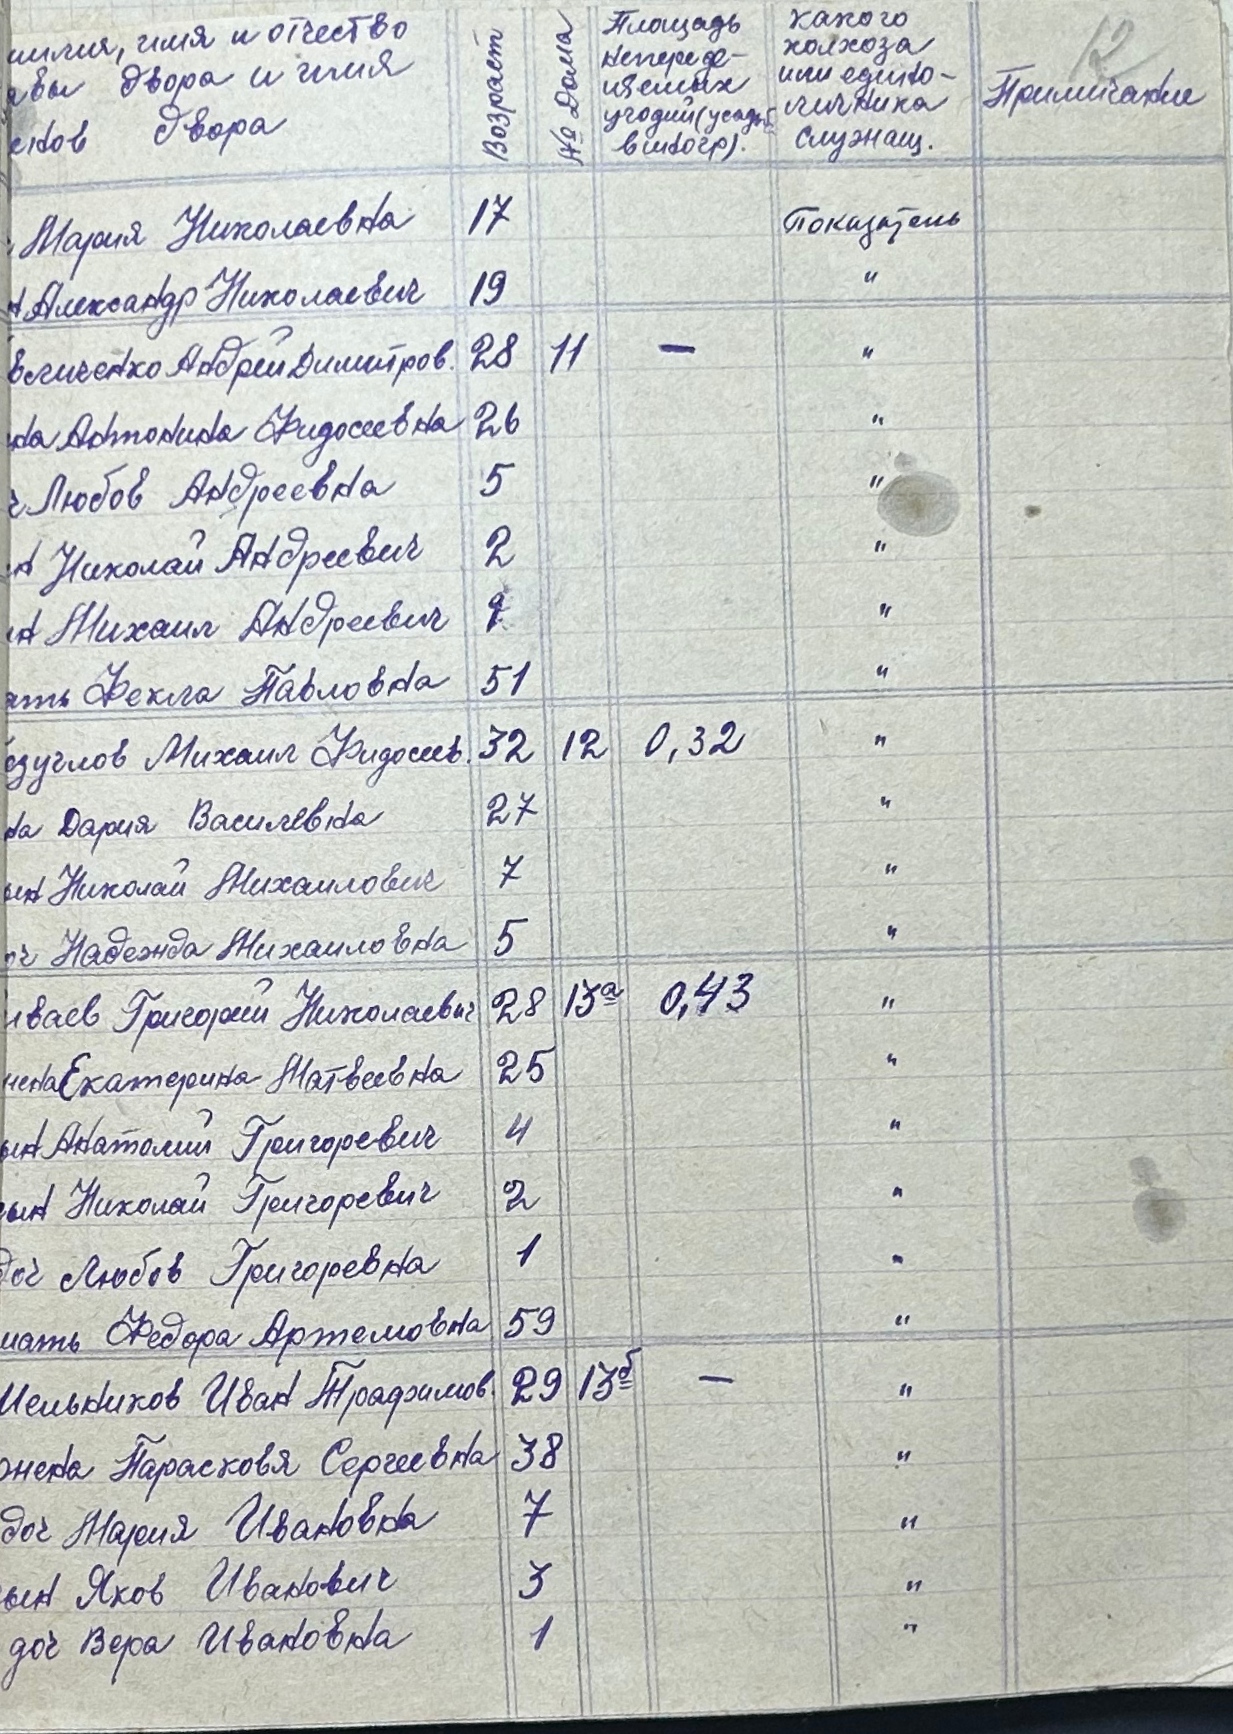 милия, имя и отчество
авы двора и имя
енов двора
Возраст
№ Дома
Площадь
непереде-
ляемых
угодий (усадьб
вшногр).
какого
колхоза
или едино-
личника
служащ.
Примичание
12
Мария Николаевна 17 Показатель
н Александр Николаевич 19 "
вличенко Андрей Димитров. 28 11 — "
на Антонина Фидосеевна 26 "
ч Любов Андреевна 5 "
н Николай Андреевич 2 "
ин Михаил Андреевич "
ать Фекла Павловна 51 "
езуглов Михаил Фидосеев. 32 12 0,32 "
на Дария Василевна 27 "
ын Николай Михаилович 7 "
оч Надежда Михаиловна 5 "
иваев Григорий Николаевич 28 13а 0,43 "
жена Екатерина Матвеевна 25 "
ын Анатолий Григоревич 4 "
сын Николай Григоревич 2 "
доч Любов Григоревна 1 "
мать Федора Артемовна 59 "
Мельников Иван Трафимов. 29 13б — "
жена Парасковя Сергеевна 38 "
доч Мария Ивановна 7 "
сын Яков Иванович 3 "
доч Вера Ивановна 1 "